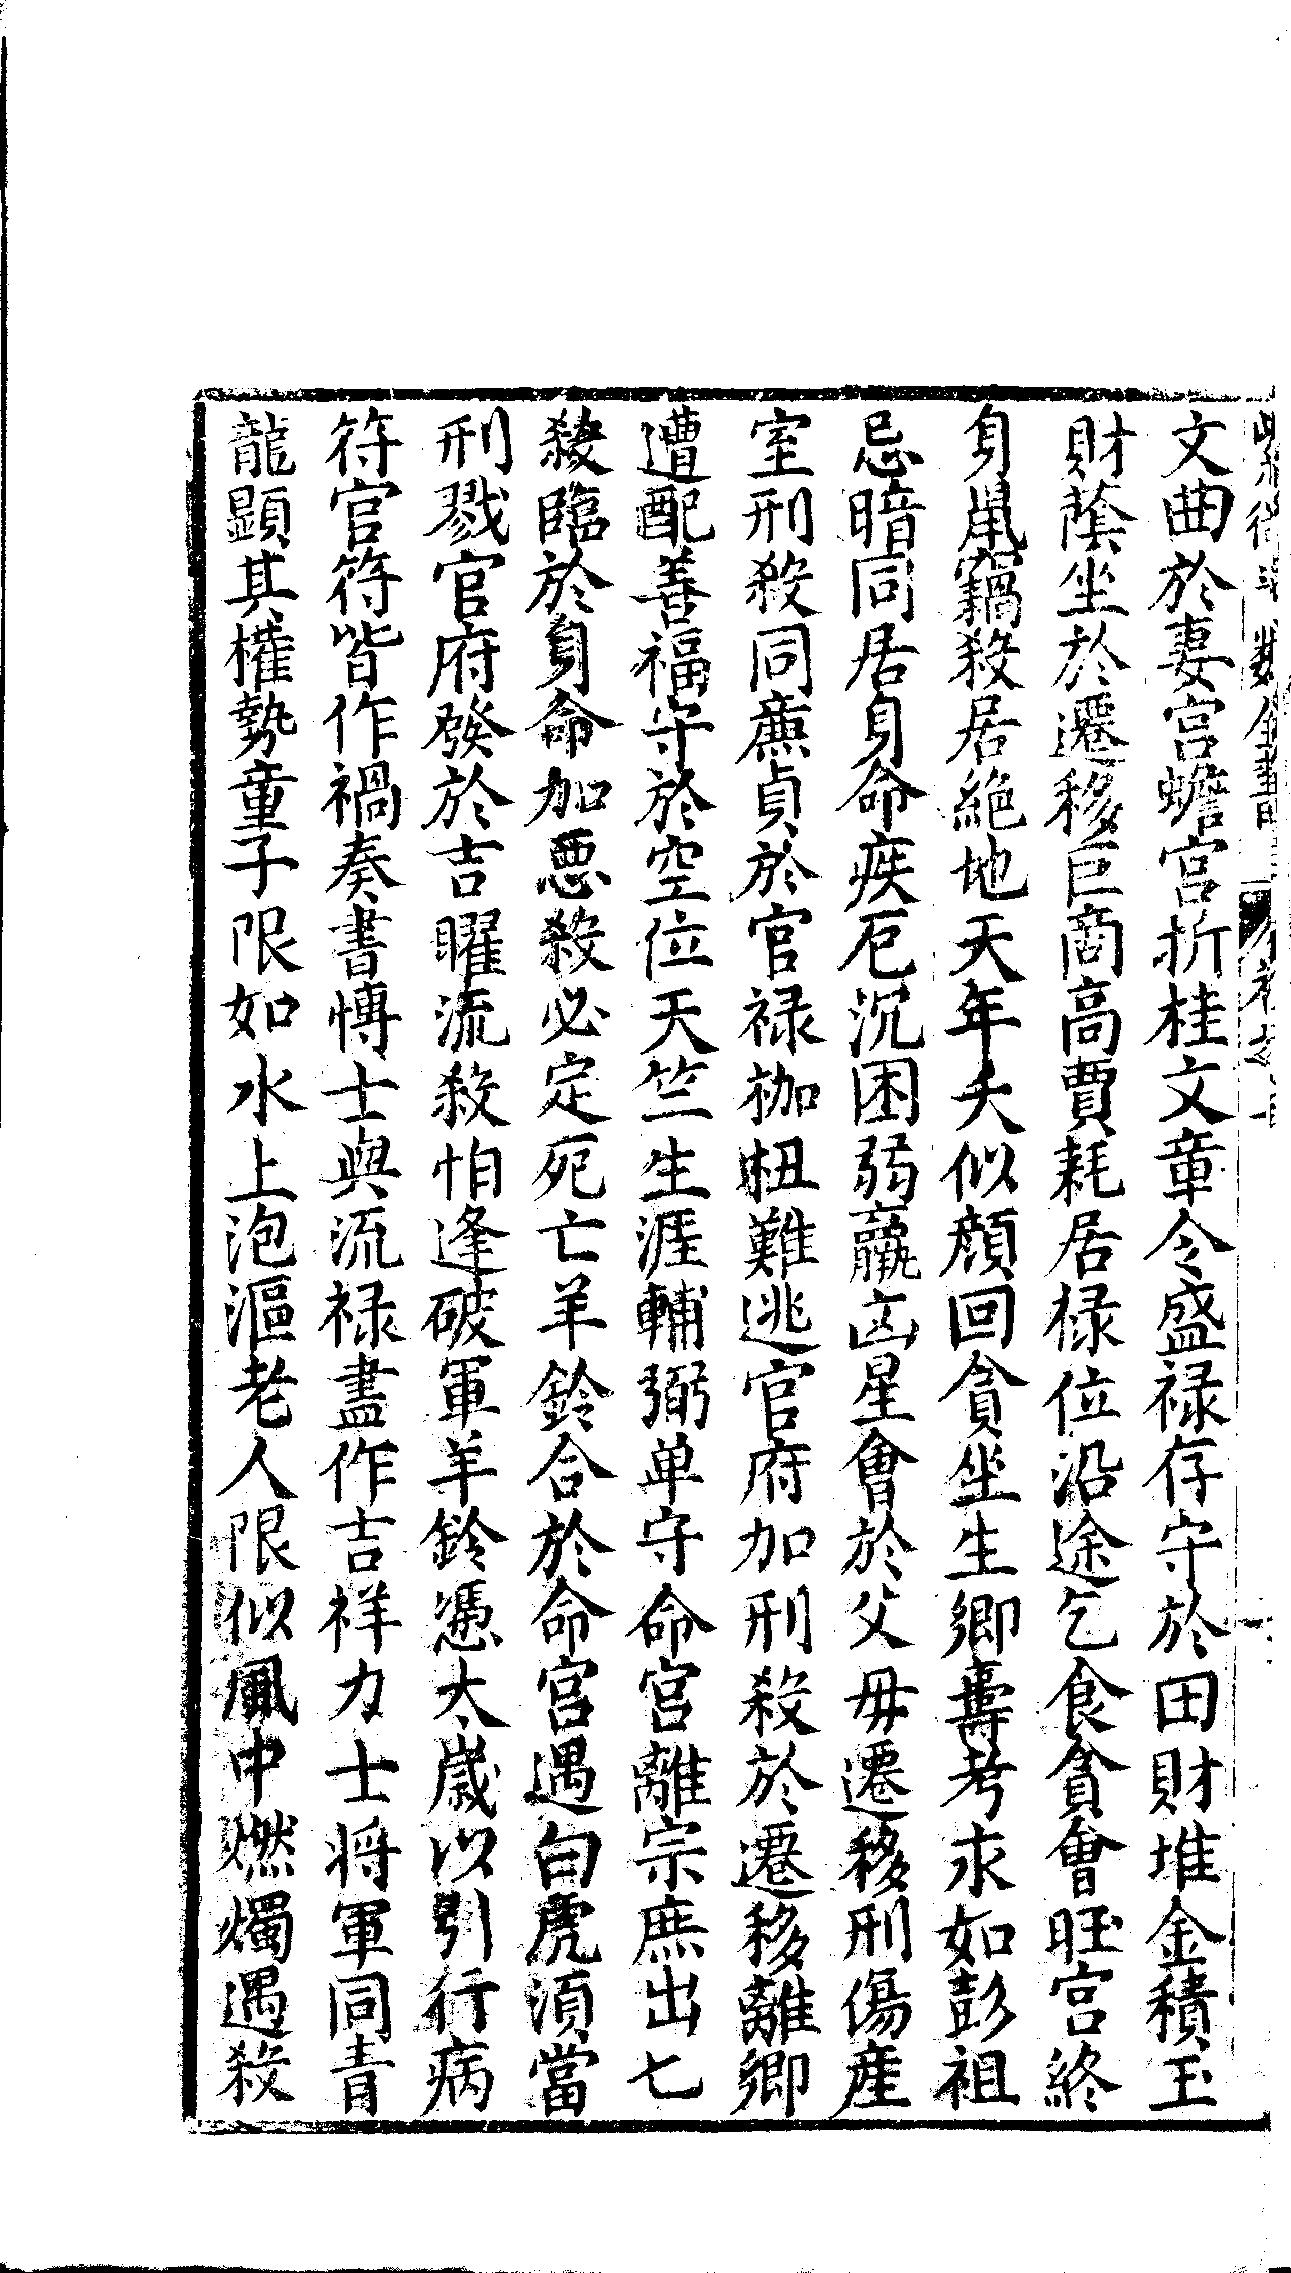 文曲於妻宮蟾宮折桂文章令盛禄存守於田財堆金積玉
財蔭坐於遷移巨商高賈耗居禄位沿途乞食貪會旺宮終
身鼠竊殺居絶地天年夭似顔回貪坐生鄉壽考永如彭祖
忌暗同居身命疾厄沉困弱羸凶星會於父母遷移刑傷産
室刑殺同廉貞於官禄枷杻難逃官府加刑殺於遷移離鄉
遭配善福守於空位天竺生涯輔弼单守命宮離宗庶出七
殺臨於身命加惡殺必定死亡羊鈴合於命宮遇白虎須當
刑戮官府發於吉曜流殺怕逢破軍羊鈴憑太歲以引行病
符官符皆作禍奏書博士與流禄盡作吉祥力士将軍同青
龍顕其權勢童子限如水上泡漚老人限似風中燃燭遇殺